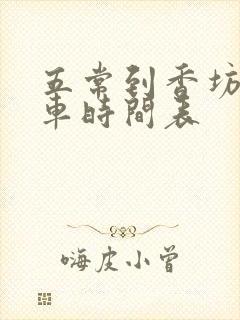 五常到香坊
車時間表
嗨皮小曾